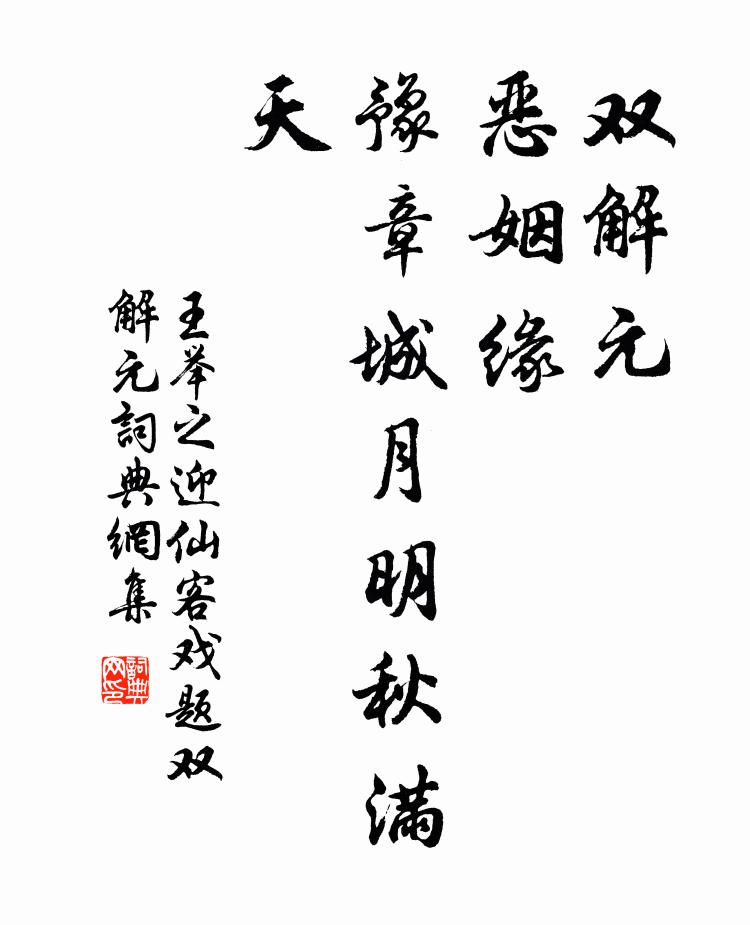 双解元
恶姻缘
豫章城月明秋满
天
王举之迎仙客戏题双
解元詞典網集
詞典
网印